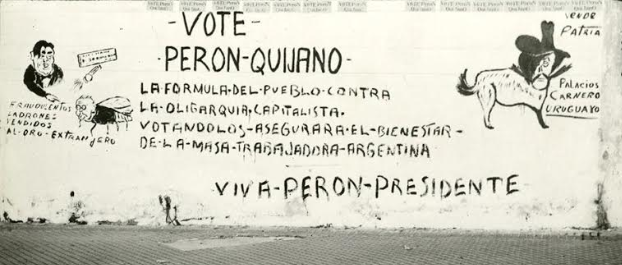 -VOTE-
·PERON-QUIJANO-
LA·FORMULA·DEL·PUEBLO·CONTRA
LA·OLIGARQUIA·CAPITALISTA.
VOTANDOLOS·ASEGURARA·EL·BIENESTAR-
DE·LA·MASA·TRABAJADORA·ARGENTINA
VIVA-PERON-PRESIDENTE
FRAUDULENTOS
LADRONES
VENDIDOS
AL·ORO·EXTRANJERO
VENDE
PATRIA
PALACIOS
CARNERO
URUGUAYO